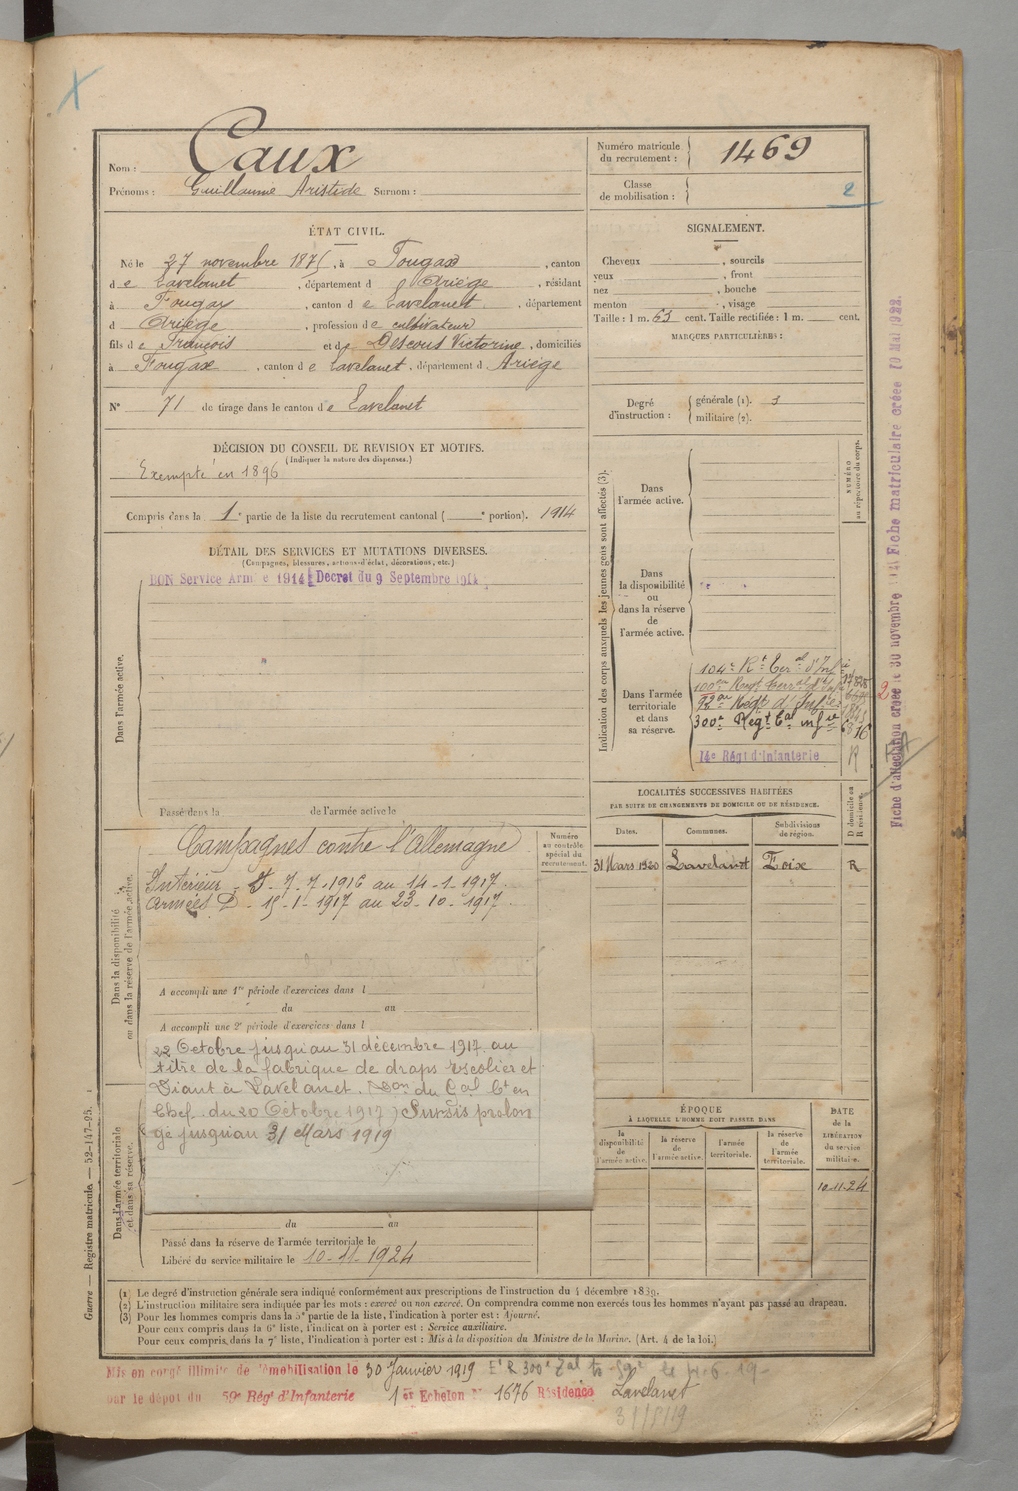 Caux
Nom :
Prénoms : Guillaume Aristide Surnom :
Numéro matricule du recrutement : 1469
Classe de mobilisation :
2
ÉTAT CIVIL.
Né le 27 novembre 1875, à Fougax, canton
de Lavelanet, département d Ariège, résidant
à Fougax, canton de Lavelanet, département
d Ariège, profession de cultivateur
fils de François et de Descous Victorine, domiciliés
à Fougax, canton de Lavelanet, département d Ariège
N° 71 de tirage dans le canton de Lavelanet
SIGNALEMENT.
Cheveux , sourcils
yeux , front
nez , bouche
menton , visage
Taille : 1 m. 63 cent. Taille rectifiée : 1 m. cent.
MARQUES PARTICULIÈRES :
Degré d'instruction : générale (1). 3
militaire (2).
DÉCISION DU CONSEIL DE REVISION ET MOTIFS.
(Indiquer la nature des dispenses.)
Exempté en 1896
Compris dans la 1e partie de la liste du recrutement cantonal ( e portion). 1914
DÉTAIL DES SERVICES ET MUTATIONS DIVERSES.
(Campagnes, blessures, actions d'éclat, décorations, etc.)
BON Service Armé 1914 Decret du 9 Septembre 1914
Dans l'armée active.
Passé dans la de l'armée active le
Dans la disponibilité ou dans la réserve de l'armée active.
Campagnes contre l'Allemagne
Numéro au contrôle spécial du recrutement.
Intérieur - 7-7-1916 au 14-1-1917.
Armées D - 15-1-1917 au 23-10-1917
A accompli une 1re période d'exercices dans l
du au
A accompli une 2e période d'exercices dans l
22 Octobre jusqu'au 31 décembre 1917 au
titre de la fabrique de draps Escolier et
Diant à Lavelanet. (Don du Gal Ct en
Chef du 20 Octobre 1917) Sursis prolon
gé jusqu'au 31 Mars 1919
Dans l'armée territoriale et dans sa réserve.
du au
Passé dans la réserve de l'armée territoriale le
Libéré du service militaire le 10-11-1924
Indication des corps auxquels les jeunes gens sont affectés (3).
NUMÉRO au répertoire du corps.
Dans l'armée active.
Dans la disponibilité ou dans la réserve de l'armée active.
Dans l'armée territoriale et dans sa réserve.
104e Rt Teral d'Infie
100e Regt Terral d'Inf
92e Régt d'Infie
300e Regt Tal infie 6816
14e Régt d'Infanterie R
LOCALITÉS SUCCESSIVES HABITÉES
PAR SUITE DE CHANGEMENTS DE DOMICILE OU DE RÉSIDENCE.
Dates. Communes. Subdivisions de région. D domicile ou R résidence.
31 Mars 1920 Lavelanet Foix R
ÉPOQUE
À LAQUELLE L'HOMME DOIT PASSER DANS
la disponibilité de l'armée active. la réserve de l'armée active. l'armée territoriale. la réserve de l'armée territoriale.
DATE de la LIBÉRATION du service militaire.
10-11-24
Fiche matriculaire créée 10 Mai 1922.
Fiche d'affectation créée le 30 novembre
Guerre — Registre matricule. — 52-147-95.
(1) Le degré d'instruction générale sera indiqué conformément aux prescriptions de l'instruction du 4 décembre 1889.
(2) L'instruction militaire sera indiquée par les mots : exercé ou non exercé. On comprendra comme non exercés tous les hommes n'ayant pas passé au drapeau.
(3) Pour les hommes compris dans la 5e partie de la liste, l'indication à porter est : Ajourné.
Pour ceux compris dans la 6e liste, l'indication à porter est : Service auxiliaire.
Pour ceux compris dans la 7e liste, l'indication à porter est : Mis à la disposition du Ministre de la Marine. (Art. 4 de la loi.)
Mis en congé illimité de démobilisation le 30 Janvier 1919
par le dépôt du 59e Régt d'Infanterie 1er Echelon N° 1676 Résidence Lavelanet